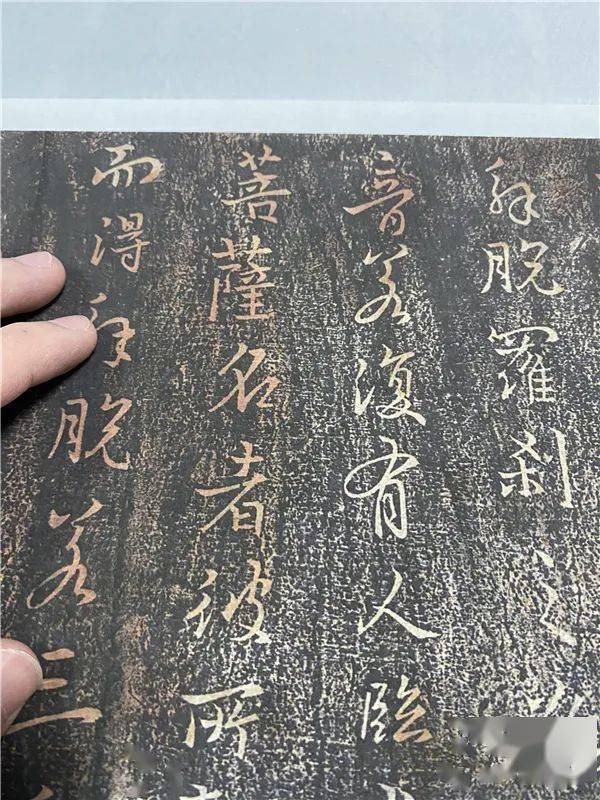 解脫羅刹之
音若復有人臨
菩薩名者彼所
而得解脫若三